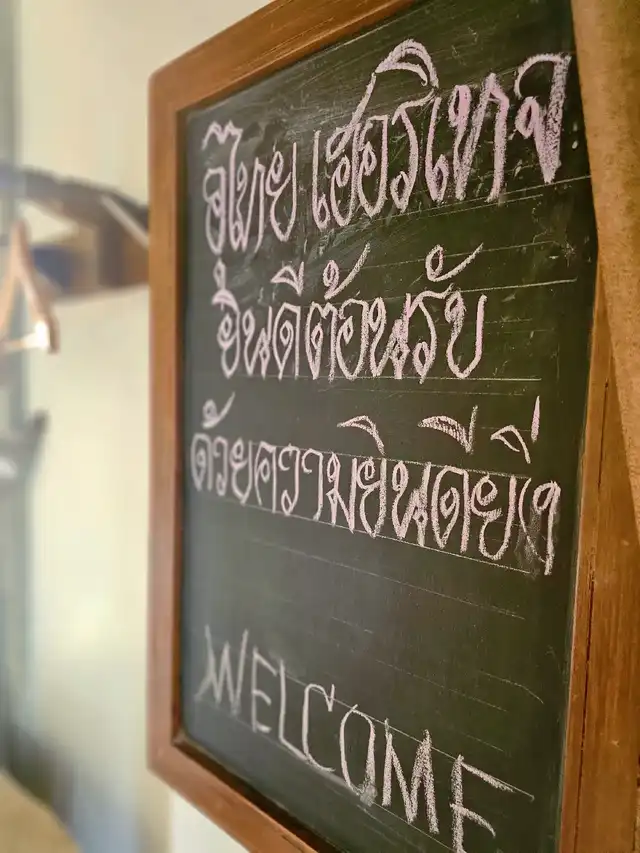 อุไทย เฮอริเทจ
ยินดีต้อนรับ
ด้วยความยินดียิ่ง
WELCOME